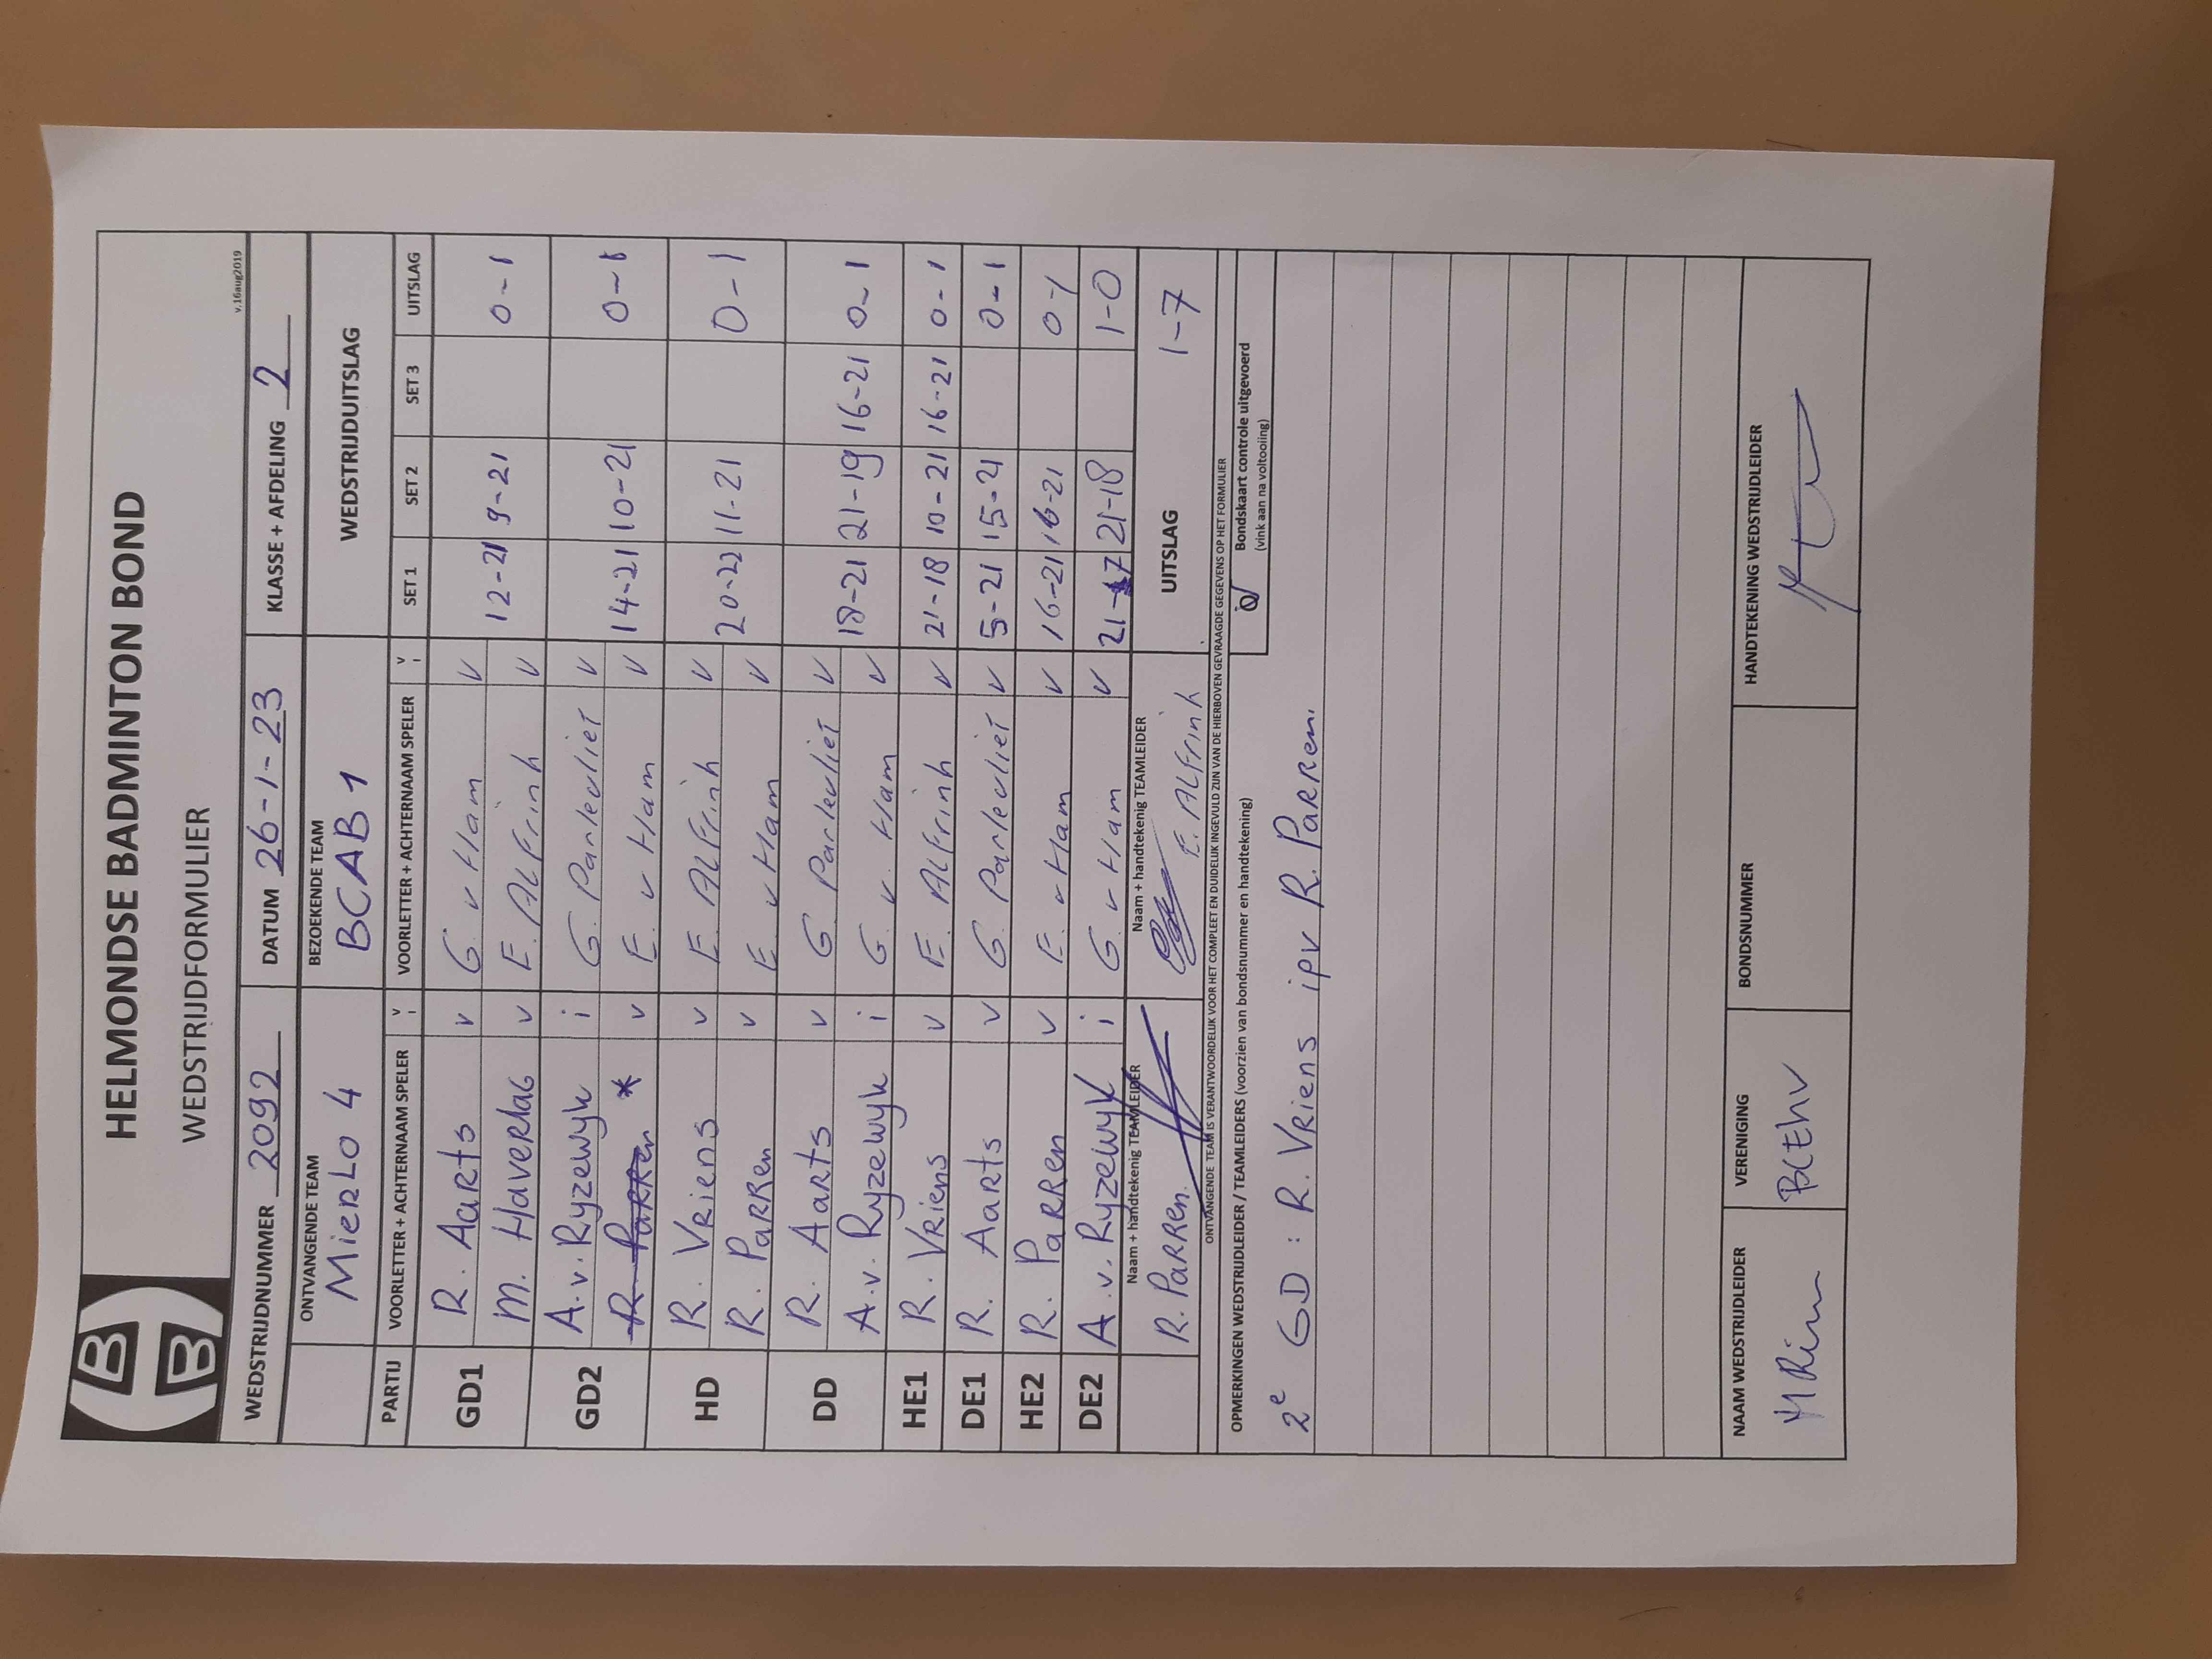 HELMONDSE BADMINTON BOND
WEDSTRIJDFORMULIER
v.16aug2019
WEDSTRIJDNUMMER 2092 DATUM 26-1-23 KLASSE + AFDELING 2
ONTVANGENDE TEAM BEZOEKENDE TEAM WEDSTRIJDUITSLAG
MierLo 4 BCAB 1
PARTIJ VOORLETTER + ACHTERNAAM SPELER V I VOORLETTER + ACHTERNAAM SPELER V I SET 1 SET 2 SET 3 UITSLAG
GD1 R. Aarts v G. v Ham v 12-21 9-21 0-1
M. Haverlag v E. Alfrink v
GD2 A.v. Ryzewyk i G. Parlevliet v 14-21 10-21 0-1
R Parren * v E. v Ham v
HD R. Vriens v E. Alfrink v 20-22 11-21 0-1
R. Parren v E. v Ham v
DD R. Aarts v G Parlevliet v 18-21 21-19 16-21 0-1
A.v. Ryzewyk i G. v. Ham v
HE1 R. Vriens v E. Alfrink v 21-18 10-21 16-21 0-1
DE1 R. Aarts v G. Parlevliet v 5-21 15-21 0-1
HE2 R. Parren v E. v Ham v 16-21 16-21 0-1
DE2 A.v. Ryzewyk i G. v Ham v 21-17 21-18 1-0
Naam + handtekenig TEAMLEIDER Naam + handtekenig TEAMLEIDER UITSLAG 1-7
R. Parren E. Alfrink
ONTVANGENDE TEAM IS VERANTWOORDELIJK VOOR HET COMPLEET EN DUIDELIJK INGEVULD ZIJN VAN DE HIERBOVEN GEVRAAGDE GEGEVENS OP HET FORMULIER
OPMERKINGEN WEDSTRIJDLEIDER / TEAMLEIDERS (voorzien van bondsnummer en handtekening) Bondskaart controle uitgevoerd
(vink aan na voltooiing)
2e GD : R. Vriens ipv R. Parren.
NAAM WEDSTRIJDLEIDER VERENIGING BONDSNUMMER HANDTEKENING WEDSTRIJDLEIDER